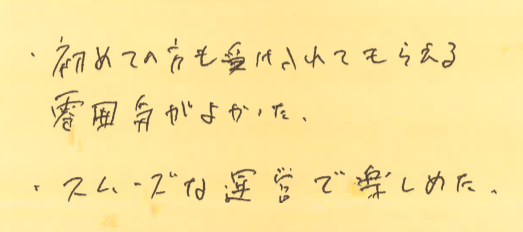 ・初めての方も受け入れてもらえる
雰囲気がよかった。
・スムーズな運営で楽しめた。